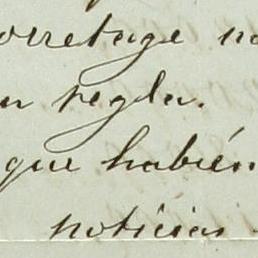 orretage no
en regla.
que habién
noticias